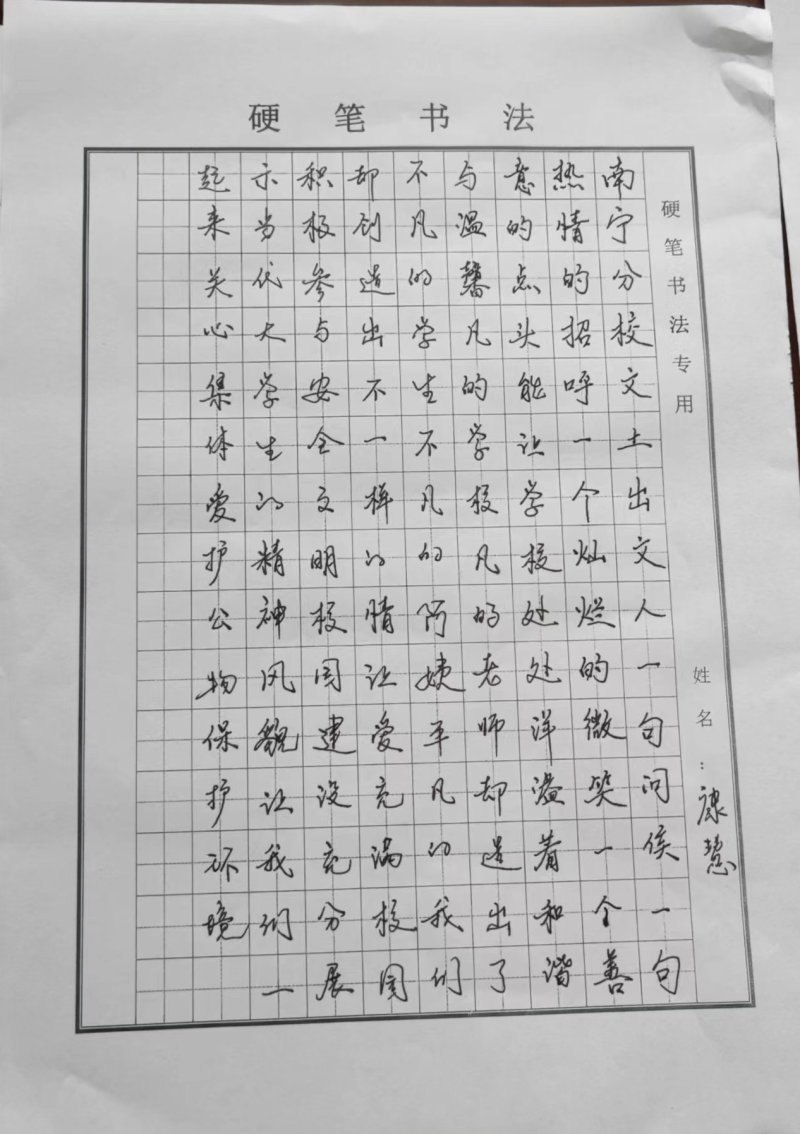 硬笔书法
硬笔书法专用
姓名：康慧
南宁分校文土出文人一句问侯一句
热情的招呼一个灿烂的微笑一个善
意的点头能让学校处处洋溢着和谐
与温馨凡的学校凡的老师却造出了
不凡的学生不凡的阿姨平凡的我们
却创造出不一样的情让爱充满校园
积极参与安全文明校园建设充分展
示当代大学生的精神风貌让我们一
起来关心集体爱护公物保护环境